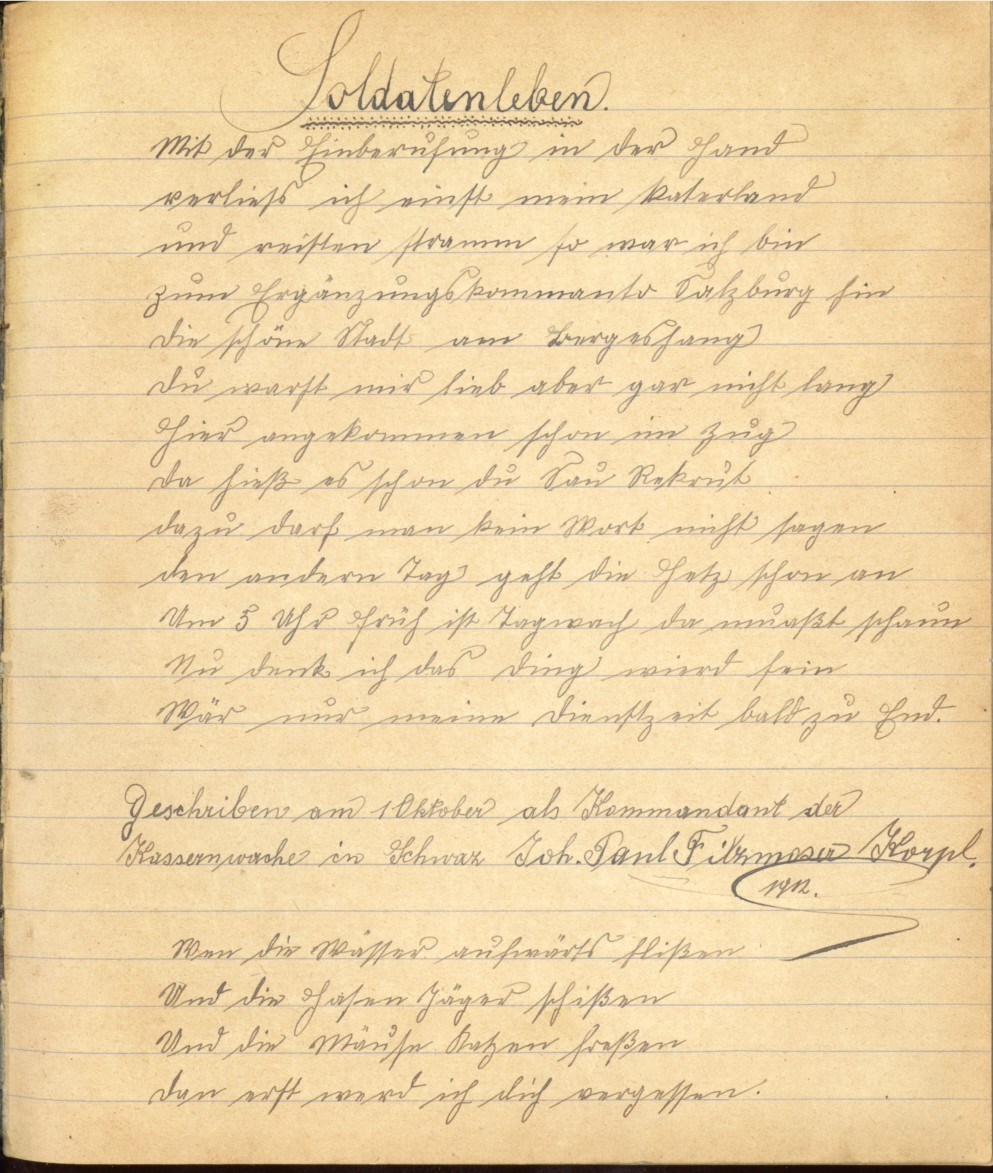 Soldatenleben.
Mit der Einberufung in der Hand
verließ ich einst mein Vaterland
und reisten stramm so war ich bin
zum Ergänzungskommanto Salzburg hin
die schöne Stadt am Bergeshang
du warst mir lieb aber gar nicht lang
Hier angekommen schon im Zug
da hieß es schon du Sau Rekrut
dazu darf man kein Wort nicht sagen
den andern Tag geht die Hetz schon an
Um 5 Uhr früh ist Tagwach da muaßt schaun
Nu denk ich das Ding wierd fein
Wär nur meine Dienstzeit bald zu End.
Geschriben am 1 Oktober als Kommandant der
Kassernwache in Schwaz Joh. Paul Filzmoser Korpl.
1912.
Wen die Wässer aufwärts flißen
Und die Hasen Jäger schißen
Und die Mäuse Katzen freßen
dan erst werd ich dich vergessen.